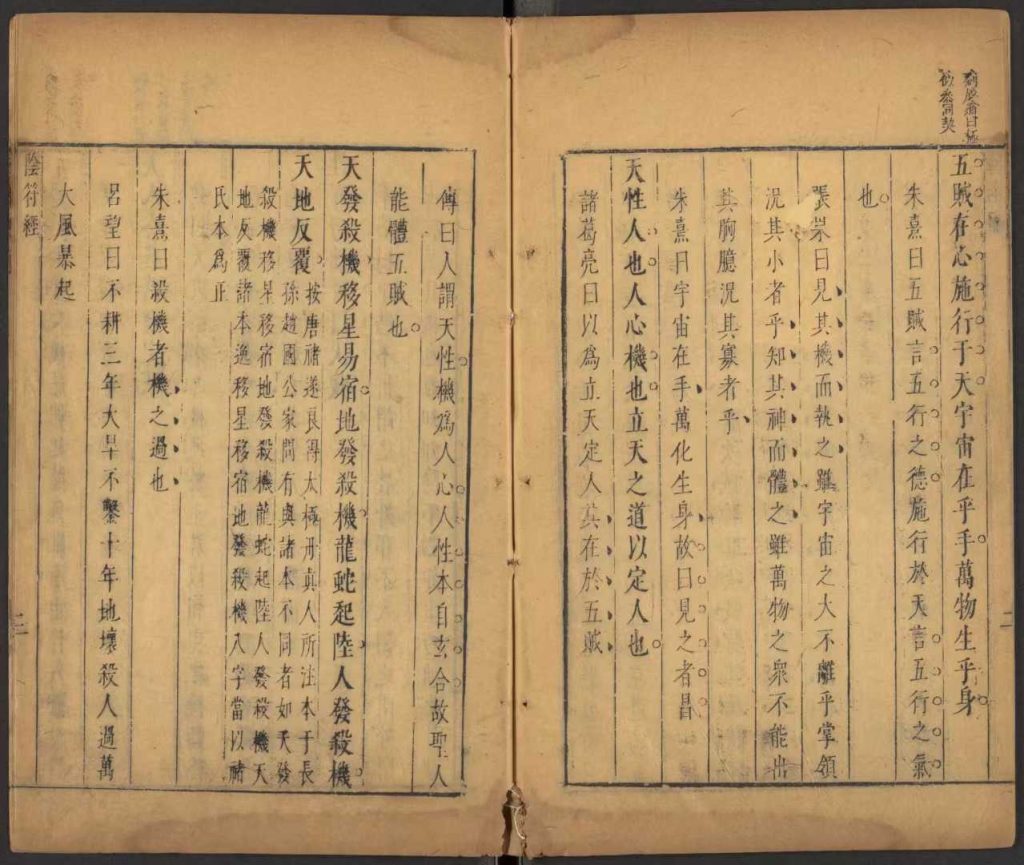 劉辰翁曰極
似參同契
五賊在心施行于天宇宙在乎手萬物生乎身
朱熹曰五賊言五行之德施行於天言五行之氣
也
張杲曰見其機而執之雖宇宙之大不離乎掌領
況其小者乎知其神而體之雖萬物之衆不能出
其胸臆況其寡者乎
朱熹曰宇宙在手萬化生身故曰見之者昌
天性人也人心機也立天之道以定人也
諸葛亮曰以爲立天定人其在於五賊
二
傳曰人謂天性機爲人心人性本自玄合故聖人
能體五賊也
天發殺機移星易宿地發殺機龍蛇起陸人發殺機
天地反覆
按唐褚遂良得太極丹真人所注本于長
孫趙國公家問有與諸本不同者如天發
殺機移星移宿地發殺機龍蛇起陸人發殺機天
地反覆諸本逸移星移宿地發殺機八字當以褚
氏本爲正
朱熹曰殺機者機之過也
呂望曰不耕三年大旱不鑿十年地壞殺人過萬
大風暴起
陰符經
二